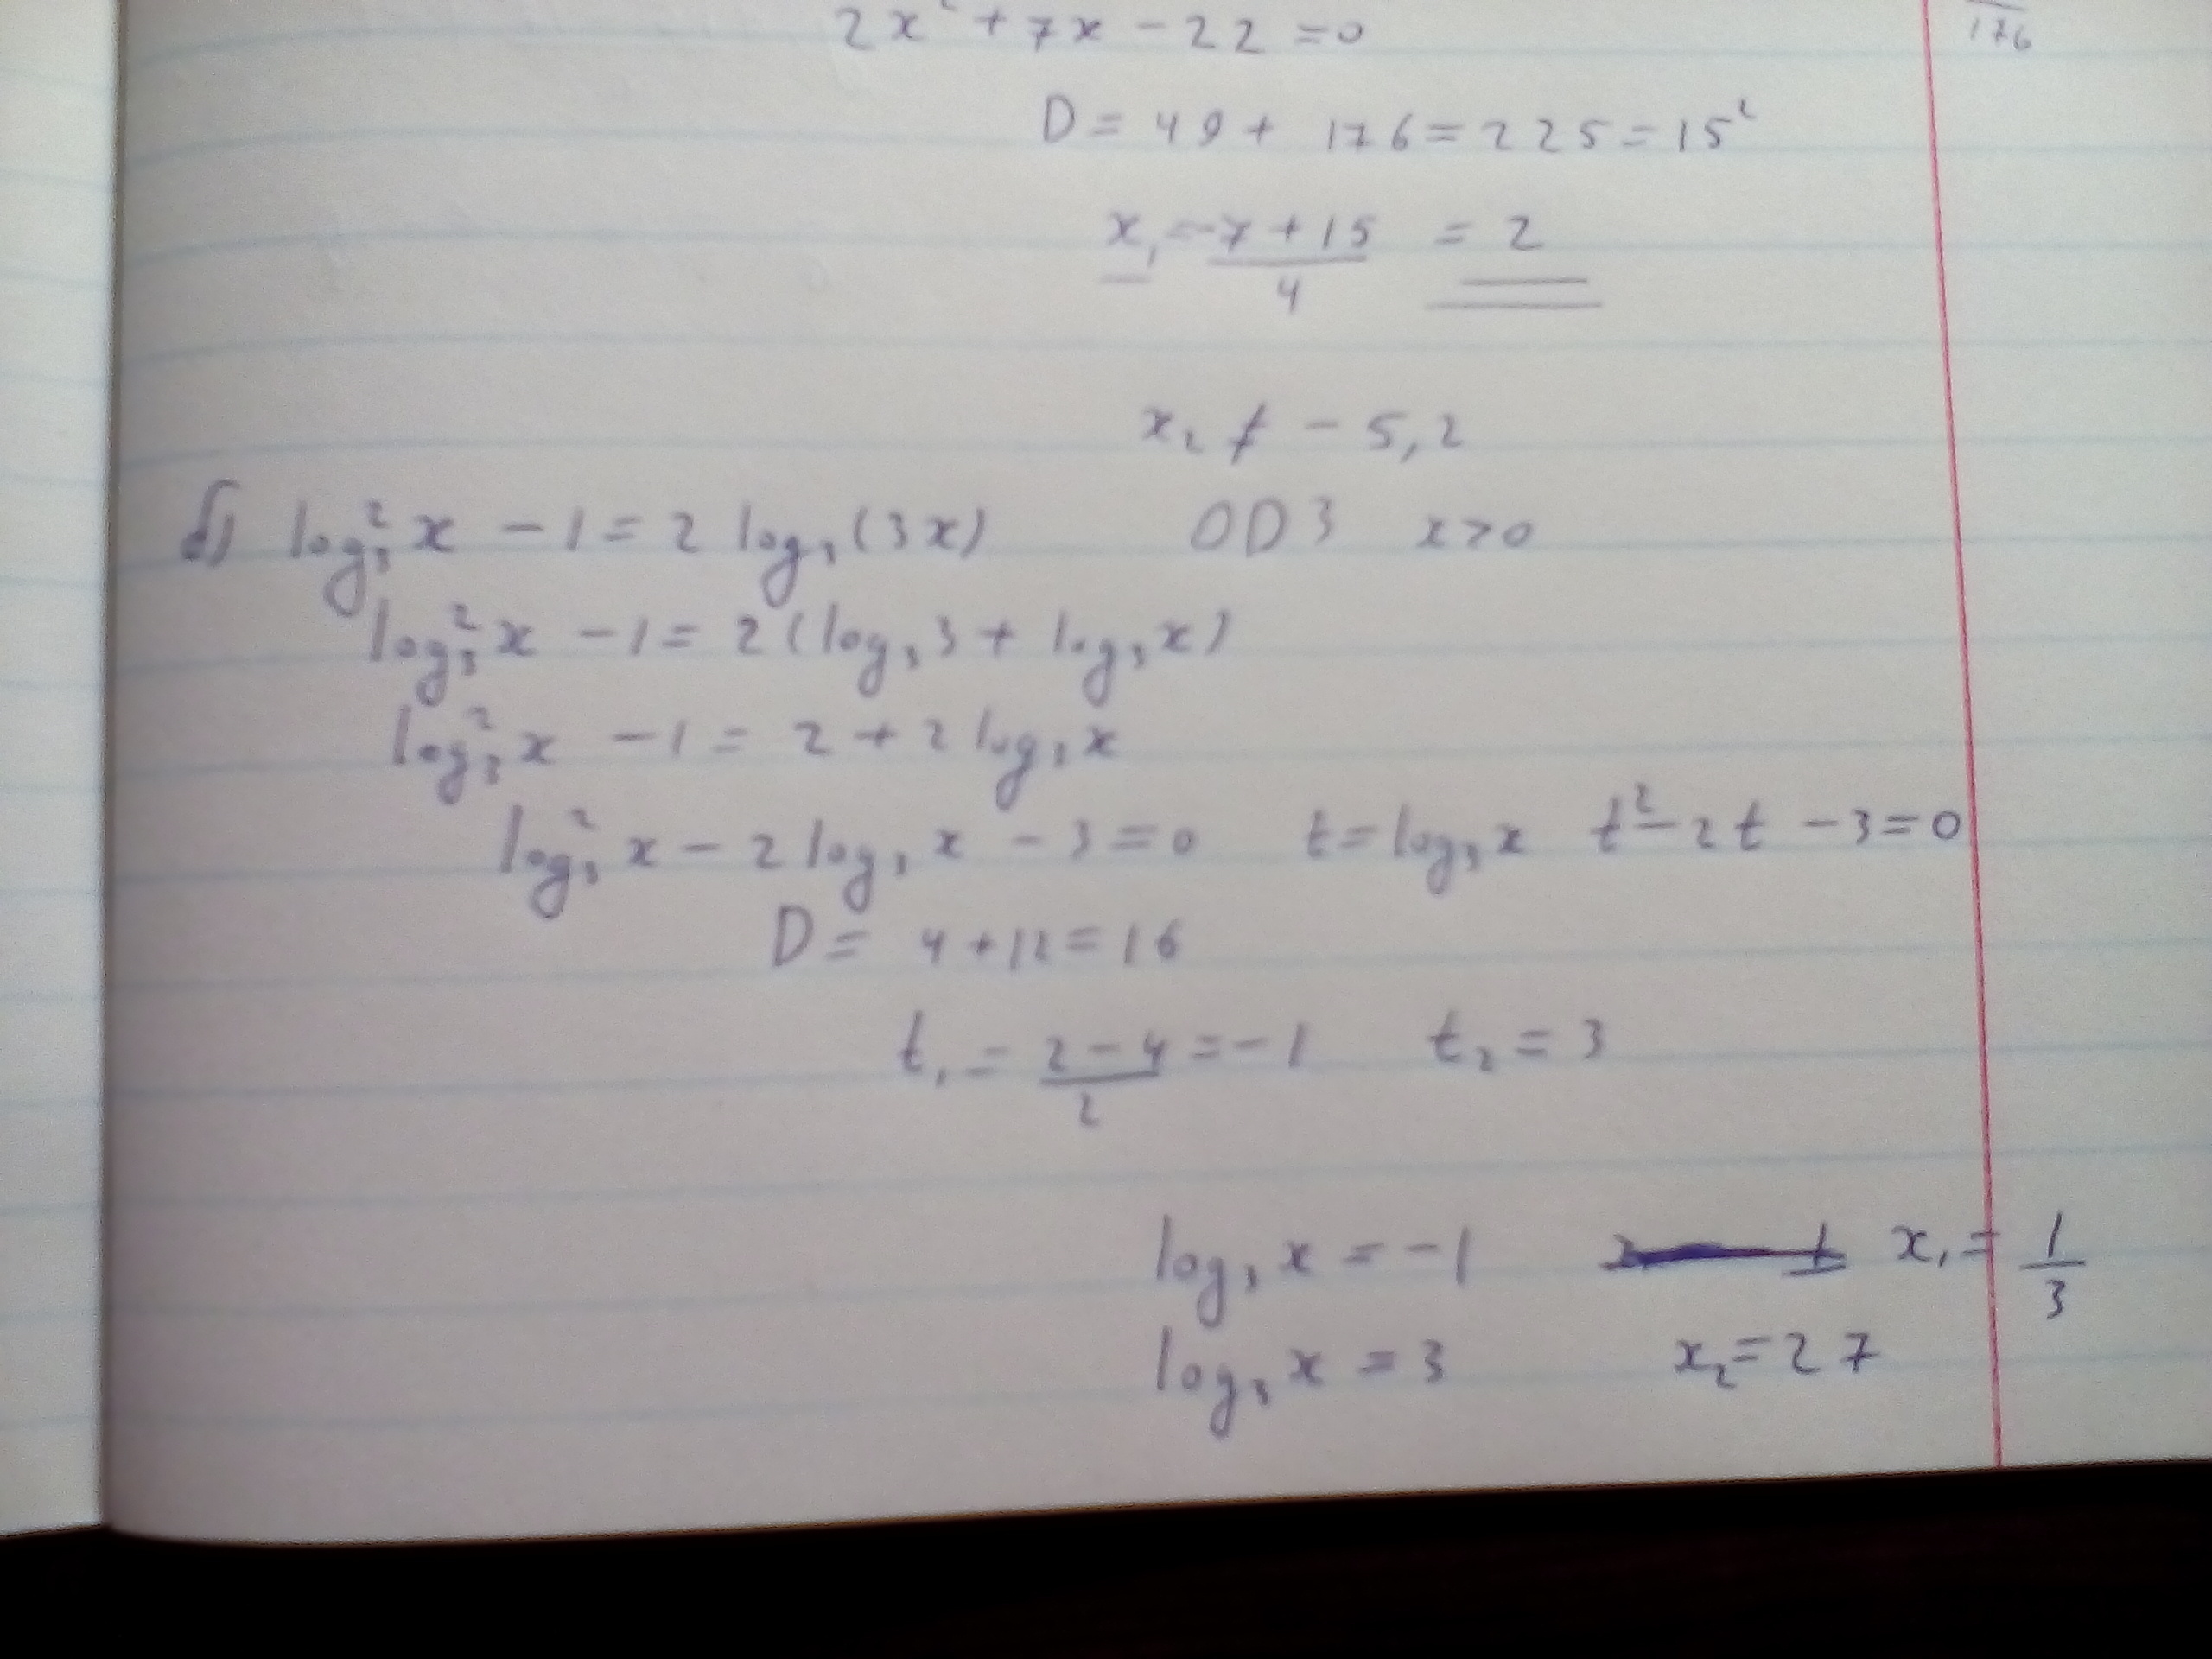 2x² + 7x - 22 = 0
176
D = 49 + 176 = 225 = 15²
x₁ = (-7 + 15)/4 = 2
x₂ ≠ - 5,2
б) log₃² x - 1 = 2 log₃ (3x) ОДЗ x > 0
log₃² x - 1 = 2 (log₃ 3 + log₃ x)
log₃² x - 1 = 2 + 2 log₃ x
log₃² x - 2 log₃ x - 3 = 0 t = log₃ x t² - 2t - 3 = 0
D = 4 + 12 = 16
t₁ = (2 - 4)/2 = -1 t₂ = 3
log₃ x = -1 x₁ = 1/3
log₃ x = 3 x₂ = 27